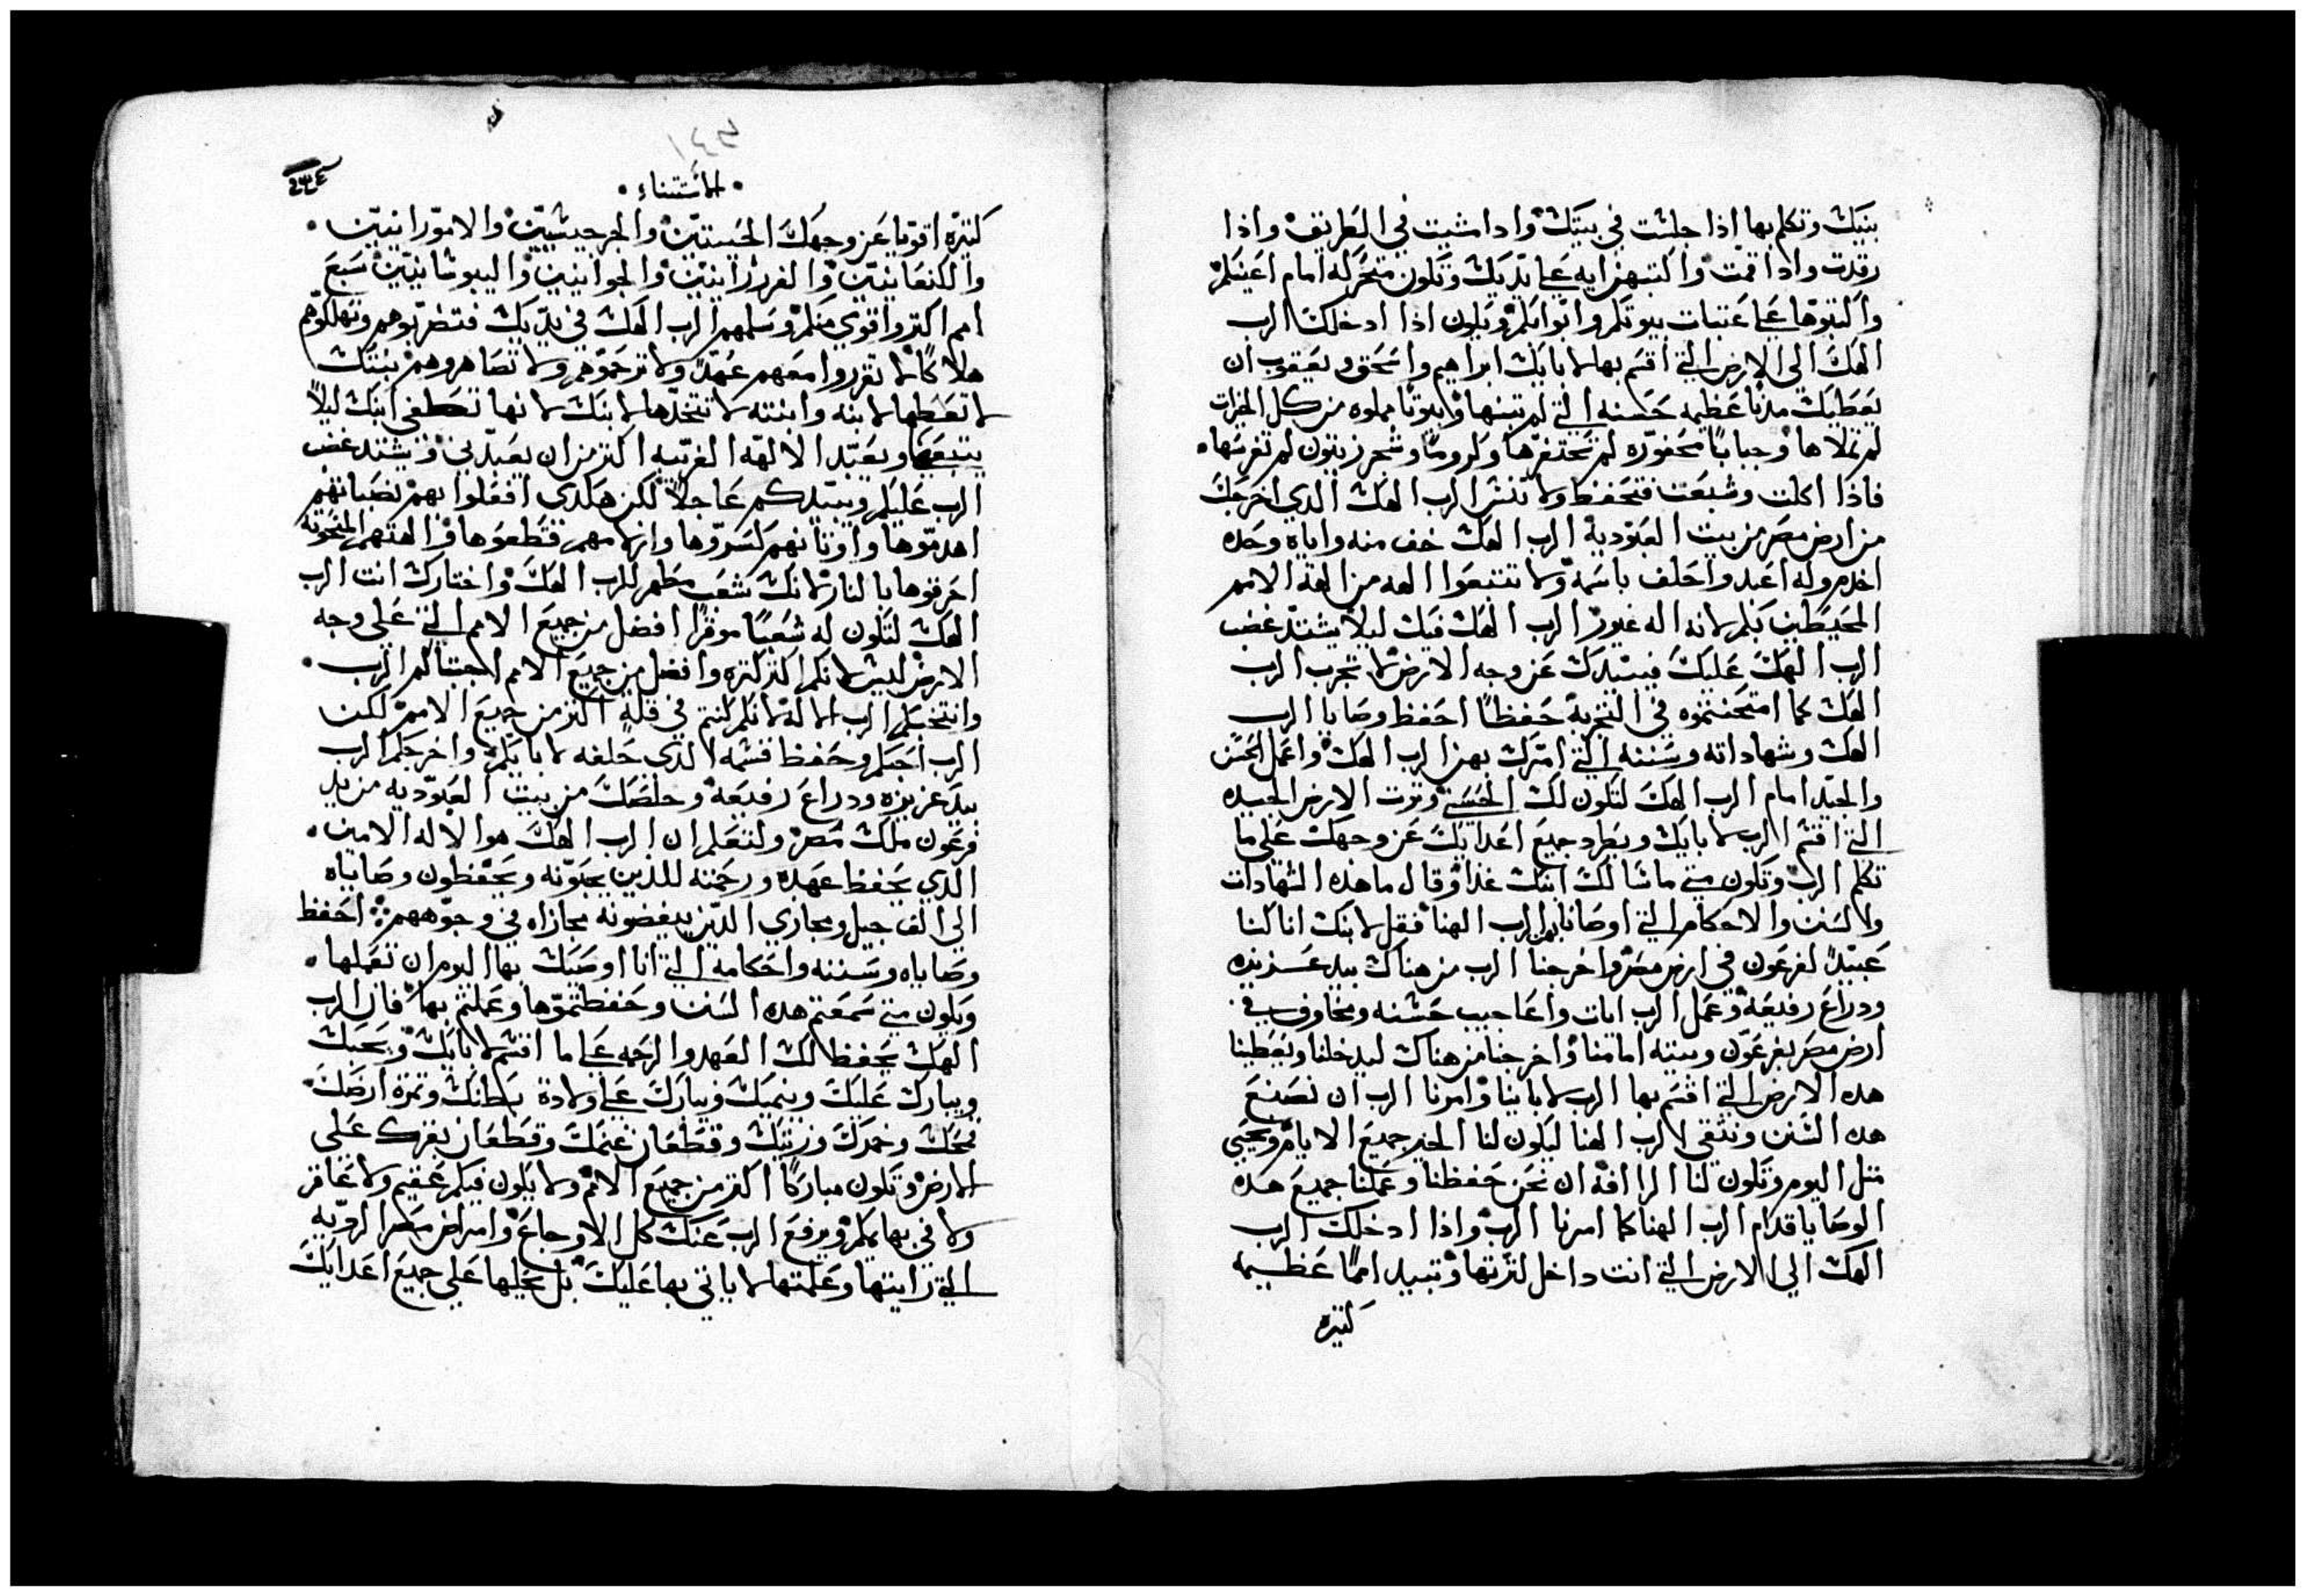 بنيك وتكلم بها اذا جلست في بيتك واذا مشيت في الطريق واذا
رقدت واذا قمت واكتبهم ايه على يديك وتكون متحركه امام اعينكم
واكتبوها على عتبات بيوتكم وابوابكم ويكون اذا ادخلك الرب
الهك الى الارض التي اقسم بها لابايك ابراهيم واسحق ويعقوب ان
يعطيك مدنا عظيمه حسنه التي لم تبنها وبيوتا مملوه من كل الخيرات
لم تملاها وجبابا محفوره لم تحتفرها وكروما وشجر زيتون لم تغرسها
فاذا اكلت وشبعت فتحفظ ولا تنس الرب الهك الدي اخرجك
من ارض مصر من بيت العبوديه الرب الهك خف منه واياه وحده
اخدم وله اعبد واحلف باسمه ولا تتبعوا الهه من الهة الامم
المحيطين بكم لانه اله غيور الرب الهك فيك ليلا يشتد غضب
الرب الهك عليك فيبيدك عن وجه الارض لا تجرب الرب
الهك كما امتحنتموه في التجربة حفظا احفظ وصايا الرب
الهك وشهاداته وسننه التي امرك بهن الرب الهك واعمل الحسن
والجيد امام الرب الهك لتكون لك الحسنى وترت الارض الجيده
التي اقسم الرب لابايك ويطرد جميع اعدايك عن وجهك على ما
تكلم الرب وتكون متى ما سالك ابنك غدا وقال ما هذه الشهادات
والسنن والاحكام التي اوصانا بهن الرب الهنا فقل لابنك انا كنا
عبيدا لفرعون في ارض مصر واخرجنا الرب من هناك بيد عزيزه
ودراع رفيعه وعمل الرب ايات واعاجيب خشنه ومخاوف في
ارض مصر بفرعون وبيته امامنا واخرجنا من هناك ليدخلنا ويعطينا
هده الارض التي اقسم بها الرب لاباينا وامرنا الرب ان نصنع
هده السنن ونتقي الرب الهنا ليكون لنا الخير جميع الايام ونحيي
متل اليوم وتكون لنا الراافه ان نحن حفظنا وعملنا جميع هده
الوصايا قدام الرب الهنا كما امرنا الرب واذا ادخلك الرب
الهك الي الارض التي انت داخل لترتها وتبيد امما عظيمه
كتيره
١٤٣
الاستتناء
كتيره اقويا عن وجهك الحيتيين والجرجيسيين والامورانيين
والكنعانيين والفرزانيين والحوانيين واليبوسانيين سبع
امم اكتر واقوي منكم وسلمهم الرب الهك في يديك فتضربوهم وتهلكوهم
هلاكا لا تقرروا معهم عهدا ولا ترحموهم ولا تصاهروهم بنتك
لا تعطها لابنه وابنته لا تتخدها لابنك لانها تطغى ابنك ليلا
يتبعها ويعبد الالهه الغريبه اكتر من ان يعبدني ويشتد غضب
الرب عليكم ويبيدكم عاجلا لكن هكدى افعلوا بهم نصباتهم
اهدموها واوتانهم كسروها وانامهم فتقطعوها والهتهم المنحوته
احرقوها بالنار لانك شعب مطهر للرب الهك واختارك انت الرب
الهك لتكون له شعبا موقرا افضل من جميع الامم التي على وجه
الارض ليس لانكم اكتر كتره وافضل من جميع الامم اجتباكم الرب
وانتخبكم الرب لانكم كنتم في قلة اكتر من جميع الامم لكن
الرب احبكم وحفظ قسمه الذي حلفه لابايكم واخرجكم الرب
بيد عزيزه ودراع رفيعه وخلصك من بيت العبوديه من يد
فرعون ملك مصر ولتعلم ان الرب الهك هو الاله الامين
الذي يحفظ عهده ورحمته للدين يحبونه ويحفظون وصاياه
الى الف جيل ومجازي الدين يبغضونه مجازاه في وجوههم احفظ
وصاياه وسننه واحكامه التي انا اوصيك بها اليوم ان تعملها
ويكون متى سمعتم هده السنن وحفظتموها وعملتم بها فان الرب
الهك يحفظ لك العهد والرحمه على ما اقسم لابايك ويحبك
ويبارك عليك وينميك ويبارك على ولادة بطنك وتمرة ارضك
قمحك وخمرك وزيتك وقطعان غنمك وقطعان بقرك على
الارض وتكون مباركا اكتر من جميع الامم ولا يكون فيكم عقيم ولا عاقر
ولا في بهايمكم ويرفع الرب عنك كل الاوجاع وامراض مصر الرديه
التي رايتها وعلمتها لا ياتي بها عليك بل يجليها على جميع اعدايك